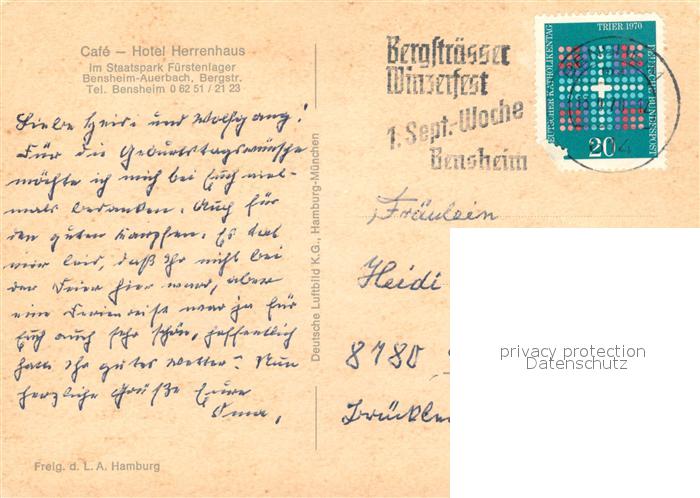 Café – Hotel Herrenhaus
Im Staatspark Fürstenlager
Bensheim-Auerbach, Bergstr.
Tel. Bensheim 0 62 51 / 21 23
Liebe Heidi und Wolfgang!
Für die Geburtstagswünsche
möchte ich mich bei Euch viel-
mals bedanken. Auch für
den guten. Es tat
mir leid, daß Ihr nicht bei
der Feier hier ward, aber
eine Ferienreise war ja für
Euch auch sehr schön, hoffentlich
hatt Ihr gutes Wetter? Nun
herzliche Grüße Eure
Oma,
Freig. d. L. A. Hamburg
Deutsche Luftbild K.G., Hamburg-München
Bergsträsser
Winzerfest
1. Sept.-Woche
Bensheim
DEUTSCHER KATHOLIKENTAG
TRIER 1970
DEUTSCHE BUNDESPOST
20
Fräulein
Heidi
8780
Brückle
privacy protection
Datenschutz